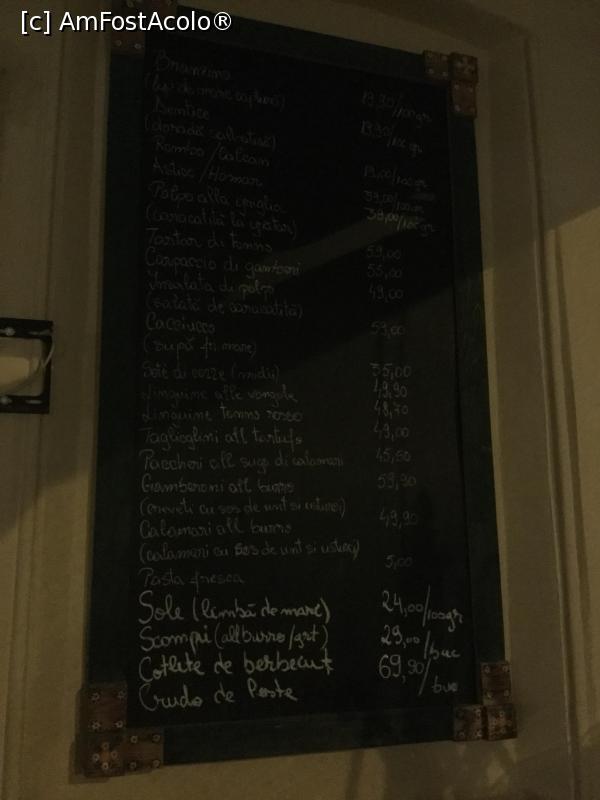 [c] AmFostAcolo®
Branzino 19,90/100gr
(lup de mare captura)
Dentice 19,90/100gr
(doradă salbatică)
Rombo/Calcan 19,00/100gr
Astice/Homar 39,00/100gr
Polpo alla griglia 39,00/100gr
(caracatită la gratar)
Tartar di tonno 59,00
Carpaccio di gamberi 55,00
Insalata di polpo 49,00
(salată de caracatită)
Cacciucco 59,00
(supă fr. mare)
Sote di cozze (midii) 35,00
Linguine alle vongole 49,90
Linguine tonno rosso 48,70
Taglioglini all tartufo 49,00
Paccheri all sugo di calamari 45,50
Gamberoni all burro 59,90
(creveti cu sos de unt si usturoi)
Calamari all burro 49,90
(calamari cu sos de unt si usturoi)
Pasta fresca 5,00
Sole (limbă de mare) 24,00/100gr
Scampi (all burro/grt) 29,00/buc
Cotlete de berbecut 69,90/buc
Crudo de Peste